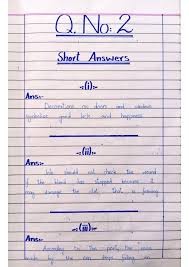 Q.No:2
Short Answers
-:(i):-
Ans:-
Decorations on doors and windows
symbolize good luck and happiness.
-:(ii):-
Ans:-
We should not check the wound
if the blood has stopped because it
may damage the clot, that is forming
-:(iii):-
Ans:-
According to this poem, the noise
made by the rain drops falling on